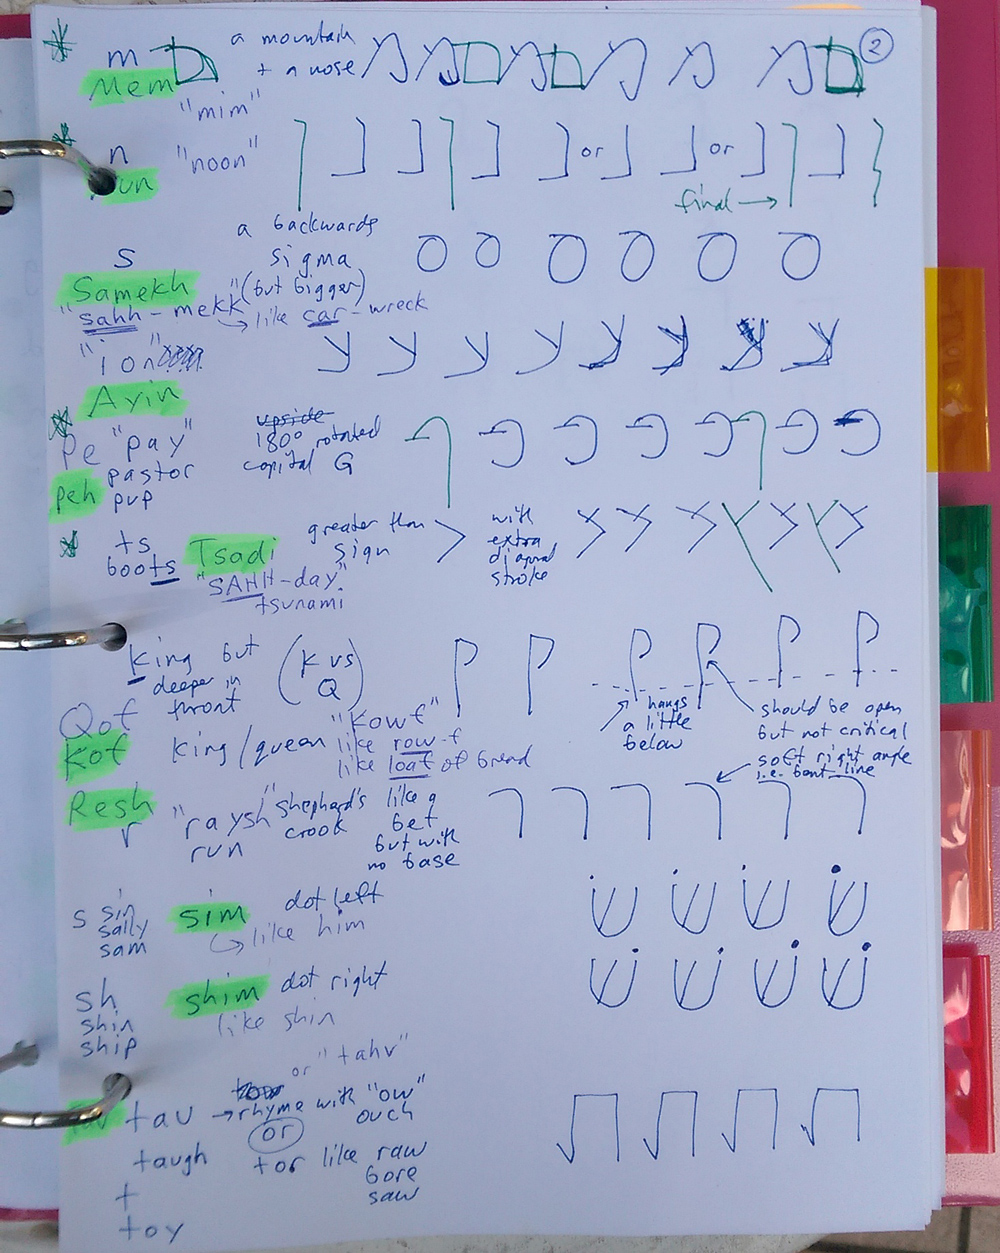 * m ם a mountain מ מ ם מ ם מ מ מ ם 2
Mem + a nose
"mim"
* n "noon" ן נ נ ן נ נ or נ נ or נ ן נ ן
Nun final →
a backwards
s sigma ס ס ס ס ס ס
Samekh (but bigger)
"sahh-mekk" → like car-wreck
"ion" ע ע ע ע ע ע ע ע
Ayin
* Pe "pay" upside ף פ פ פ פ ף פ פ
180° rotated
pastor capital G
peh pup
* ts Tsadi greater than > with צ צ צ ץ צ ץ צ
boots sign extra
"SAHH-day" diagonal
tsunami stroke
king but (K vs ק ק ק ק ק ק
deeper in Q)
throat hangs
a little
below
should be open
but not critical
Qof "kowf"
Kof king/queen like row-f
like loaf of bread
soft right angle
i.e. bent line
Resh "raysh" shephard's like a ר ר ר ר ר ר
r run crook bet
but with
no base
s sin sim dot left שׂ שׂ שׂ שׂ
sally → like him
sam
sh shim dot right שׁ שׁ שׁ שׁ
shin like shin
ship
or "tahv"
Tav tav → rhyme with "ow" ת ת ת ת
ouch
(or)
taugh tor like raw
bore
t saw
toy